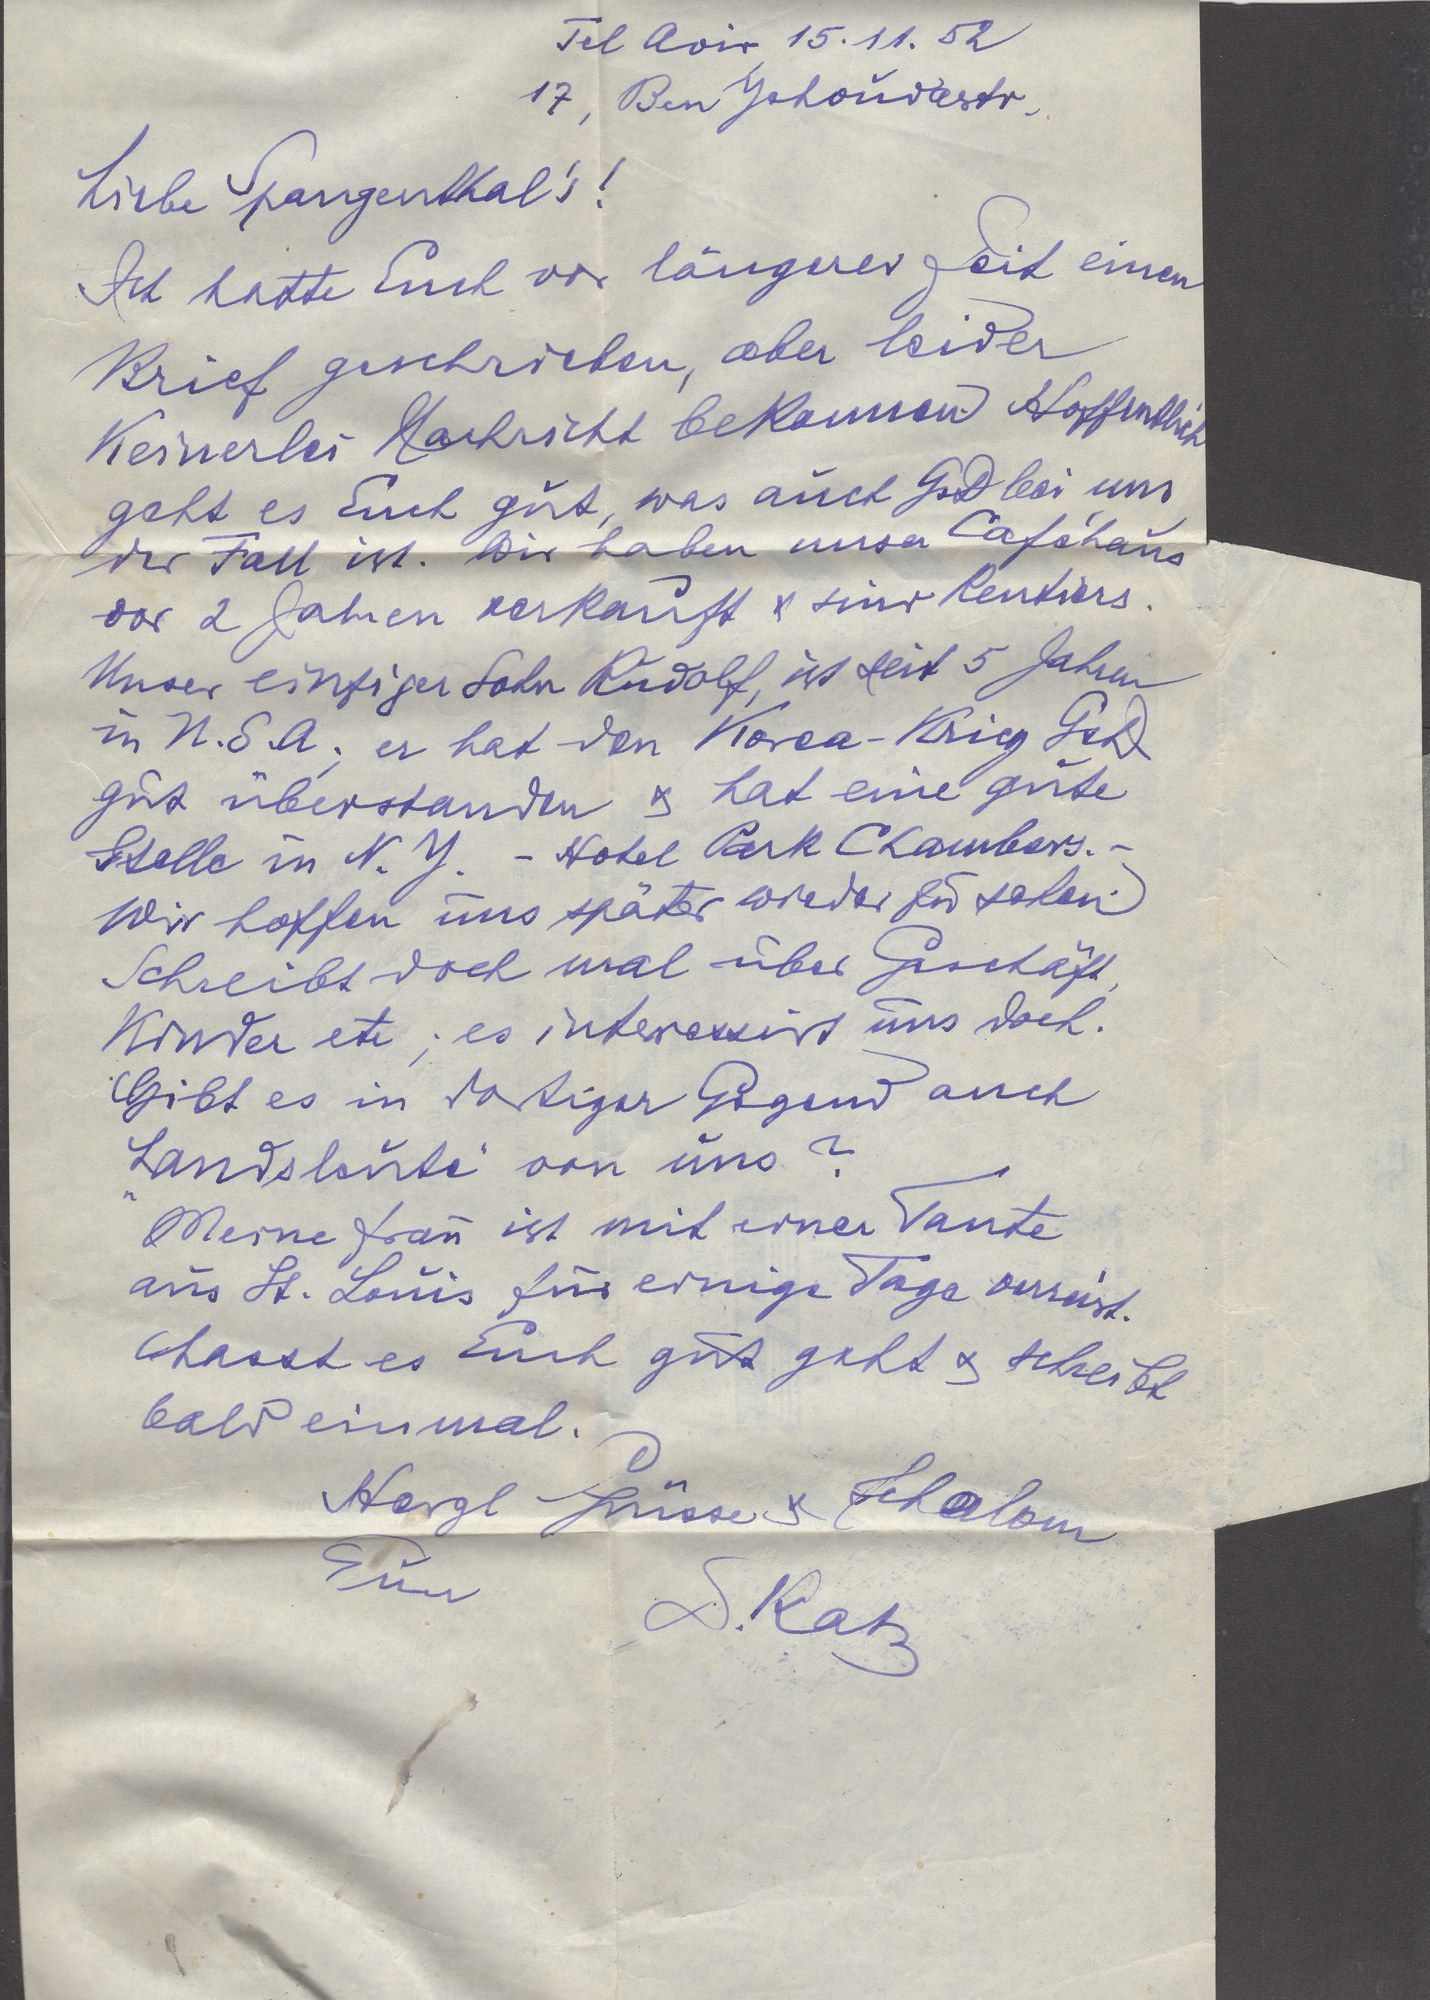 Tel Aviv, 15.11.52
17, Ben Jehoudastr.
Liebe Spangenthal's!
Ich hatte Euch vor längerer Zeit einen
Brief geschrieben, aber leider
Keinerlei Nachricht bekommen. Hoffentlich
geht es Euch gut, was auch GsD bei uns
der Fall ist. Wir haben unser Caféhaus
vor 2 Jahren verkauft & sind Rentiers.
Unser einziger Sohn Rudolf, ist seit 5 Jahren
in U.S.A.; er hat den Korea-Krieg GsD
gut überstanden & hat eine gute
Stelle in N.Y. - Hotel Park Chambers. -
Wir hoffen uns später wieder zu sehen.
Schreibt doch mal über Geschäft,
Kinder etc; es interessirt uns doch.
Gibt es in dortiger Gegend auch
"Landsleute" von uns?
Meine Frau ist mit einer Tante
aus St. Louis für einige Tage verreist.
Lasst es Euch gut geht & schreibt
bald einmal.
Herzl Grüsse & Schalom
Euer
S. Katz